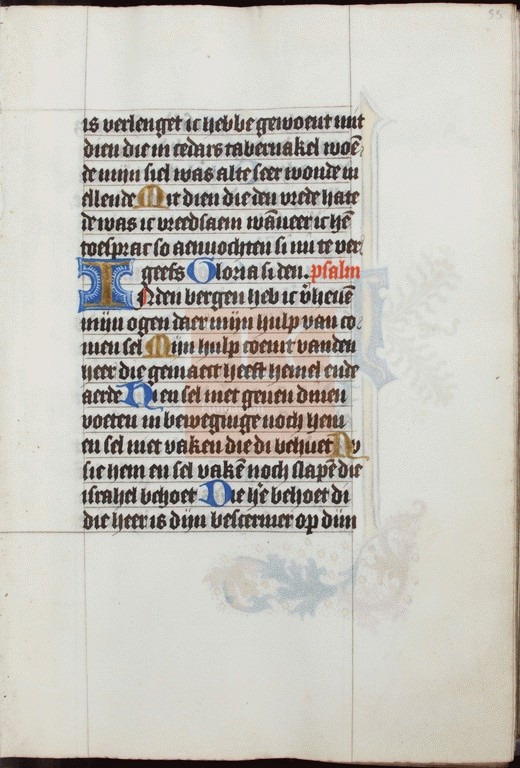 55
is verlenget ic hebbe gewoent mit
dien die in cedars tabernakel woē
de mijn siel was alte seer wonde in
ellende Mit dien die den vrede hatē
de was ic vreedsaem wāneer ic hē
toesprac so aenvochten si mi te ver
geefs Gloria si den. psalm
Toden bergen heb ic v̄heuē
mijn ogen daer mijn hulp van co
men sel Mijn hulp coemt vanden
heer die gemaect heeft hemel ende
aerde Hi en sel niet geuen dinen
voeten in beweginge noch hem
en sel niet vaken die di behuet Nv
sie hem en sel vakē noch slapē die
israhel behoet Die he behoet di
die heer is dijn bescermer op dijn